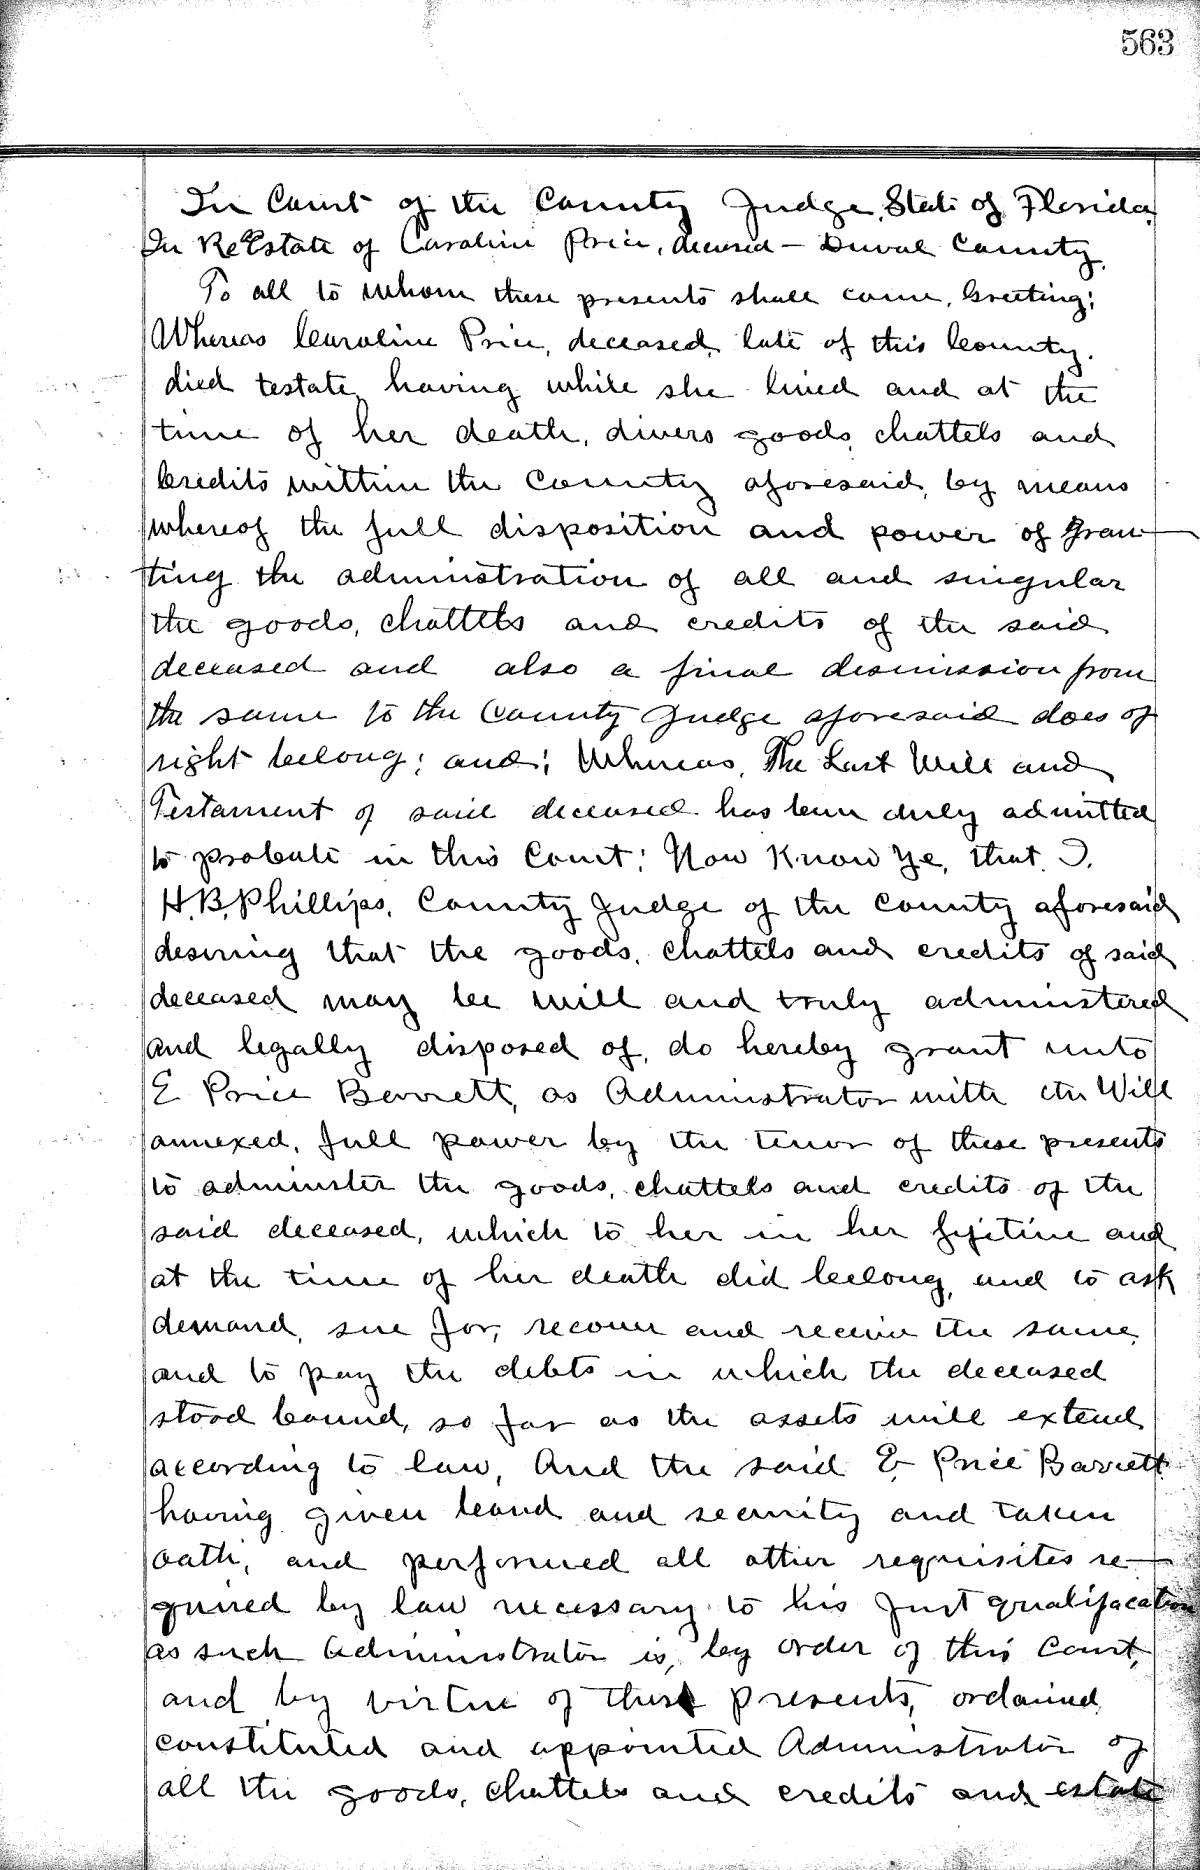 563
In Court of the County Judge, State of Florida.
In Re Estate of Caroline Price, deceased – Duval County.
To all to whom these presents shall come, Greeting;
Whereas Caroline Price, deceased, late of this County.
died testate, having while she lived and at the
time of her death, divers goods, chattels and
Credits within the County aforesaid, by means
whereof the full disposition and power of gran-
ting the administration of all and singular
the goods, chattels and credits of the said
deceased and also a final dismission from
the same to the County Judge aforesaid does of
right belong; and; Whereas, The Last Will and
Testament of said deceased has been duly admitted
to probate in this Court; Now Know Ye, that I.
H.B. Phillips, County Judge of the County aforesaid
desiring that the goods, chattels and credits of said
deceased may be well and truly administered
and legally disposed of, do hereby grant unto
E Price Barrett, as Administrator with the Will
annexed, full power by the tenor of these presents
to administer the goods, chattels and credits of the
said deceased, which to her in her lifetime and
at the time of her death did belong, and to ask
demand, sue for, recover and receive the same,
and to pay the debts in which the deceased
stood bound, so far as the assets will extend
according to law, And the said E Price Barrett
having given bond and security and taken
oath, and performed all other requisites re-
quired by law necessary to his just qualifacation
as such Administrator is, by order of this Court,
and by virtue of these presents, ordained,
constituted and appointed Administrator of
all the goods, chattels and credits and estate